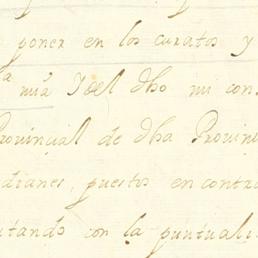 poner en los curatos y
mia Y del dho mi con
Provincial de dha Provin
dianes, puestos en contra
utando con la puntuali